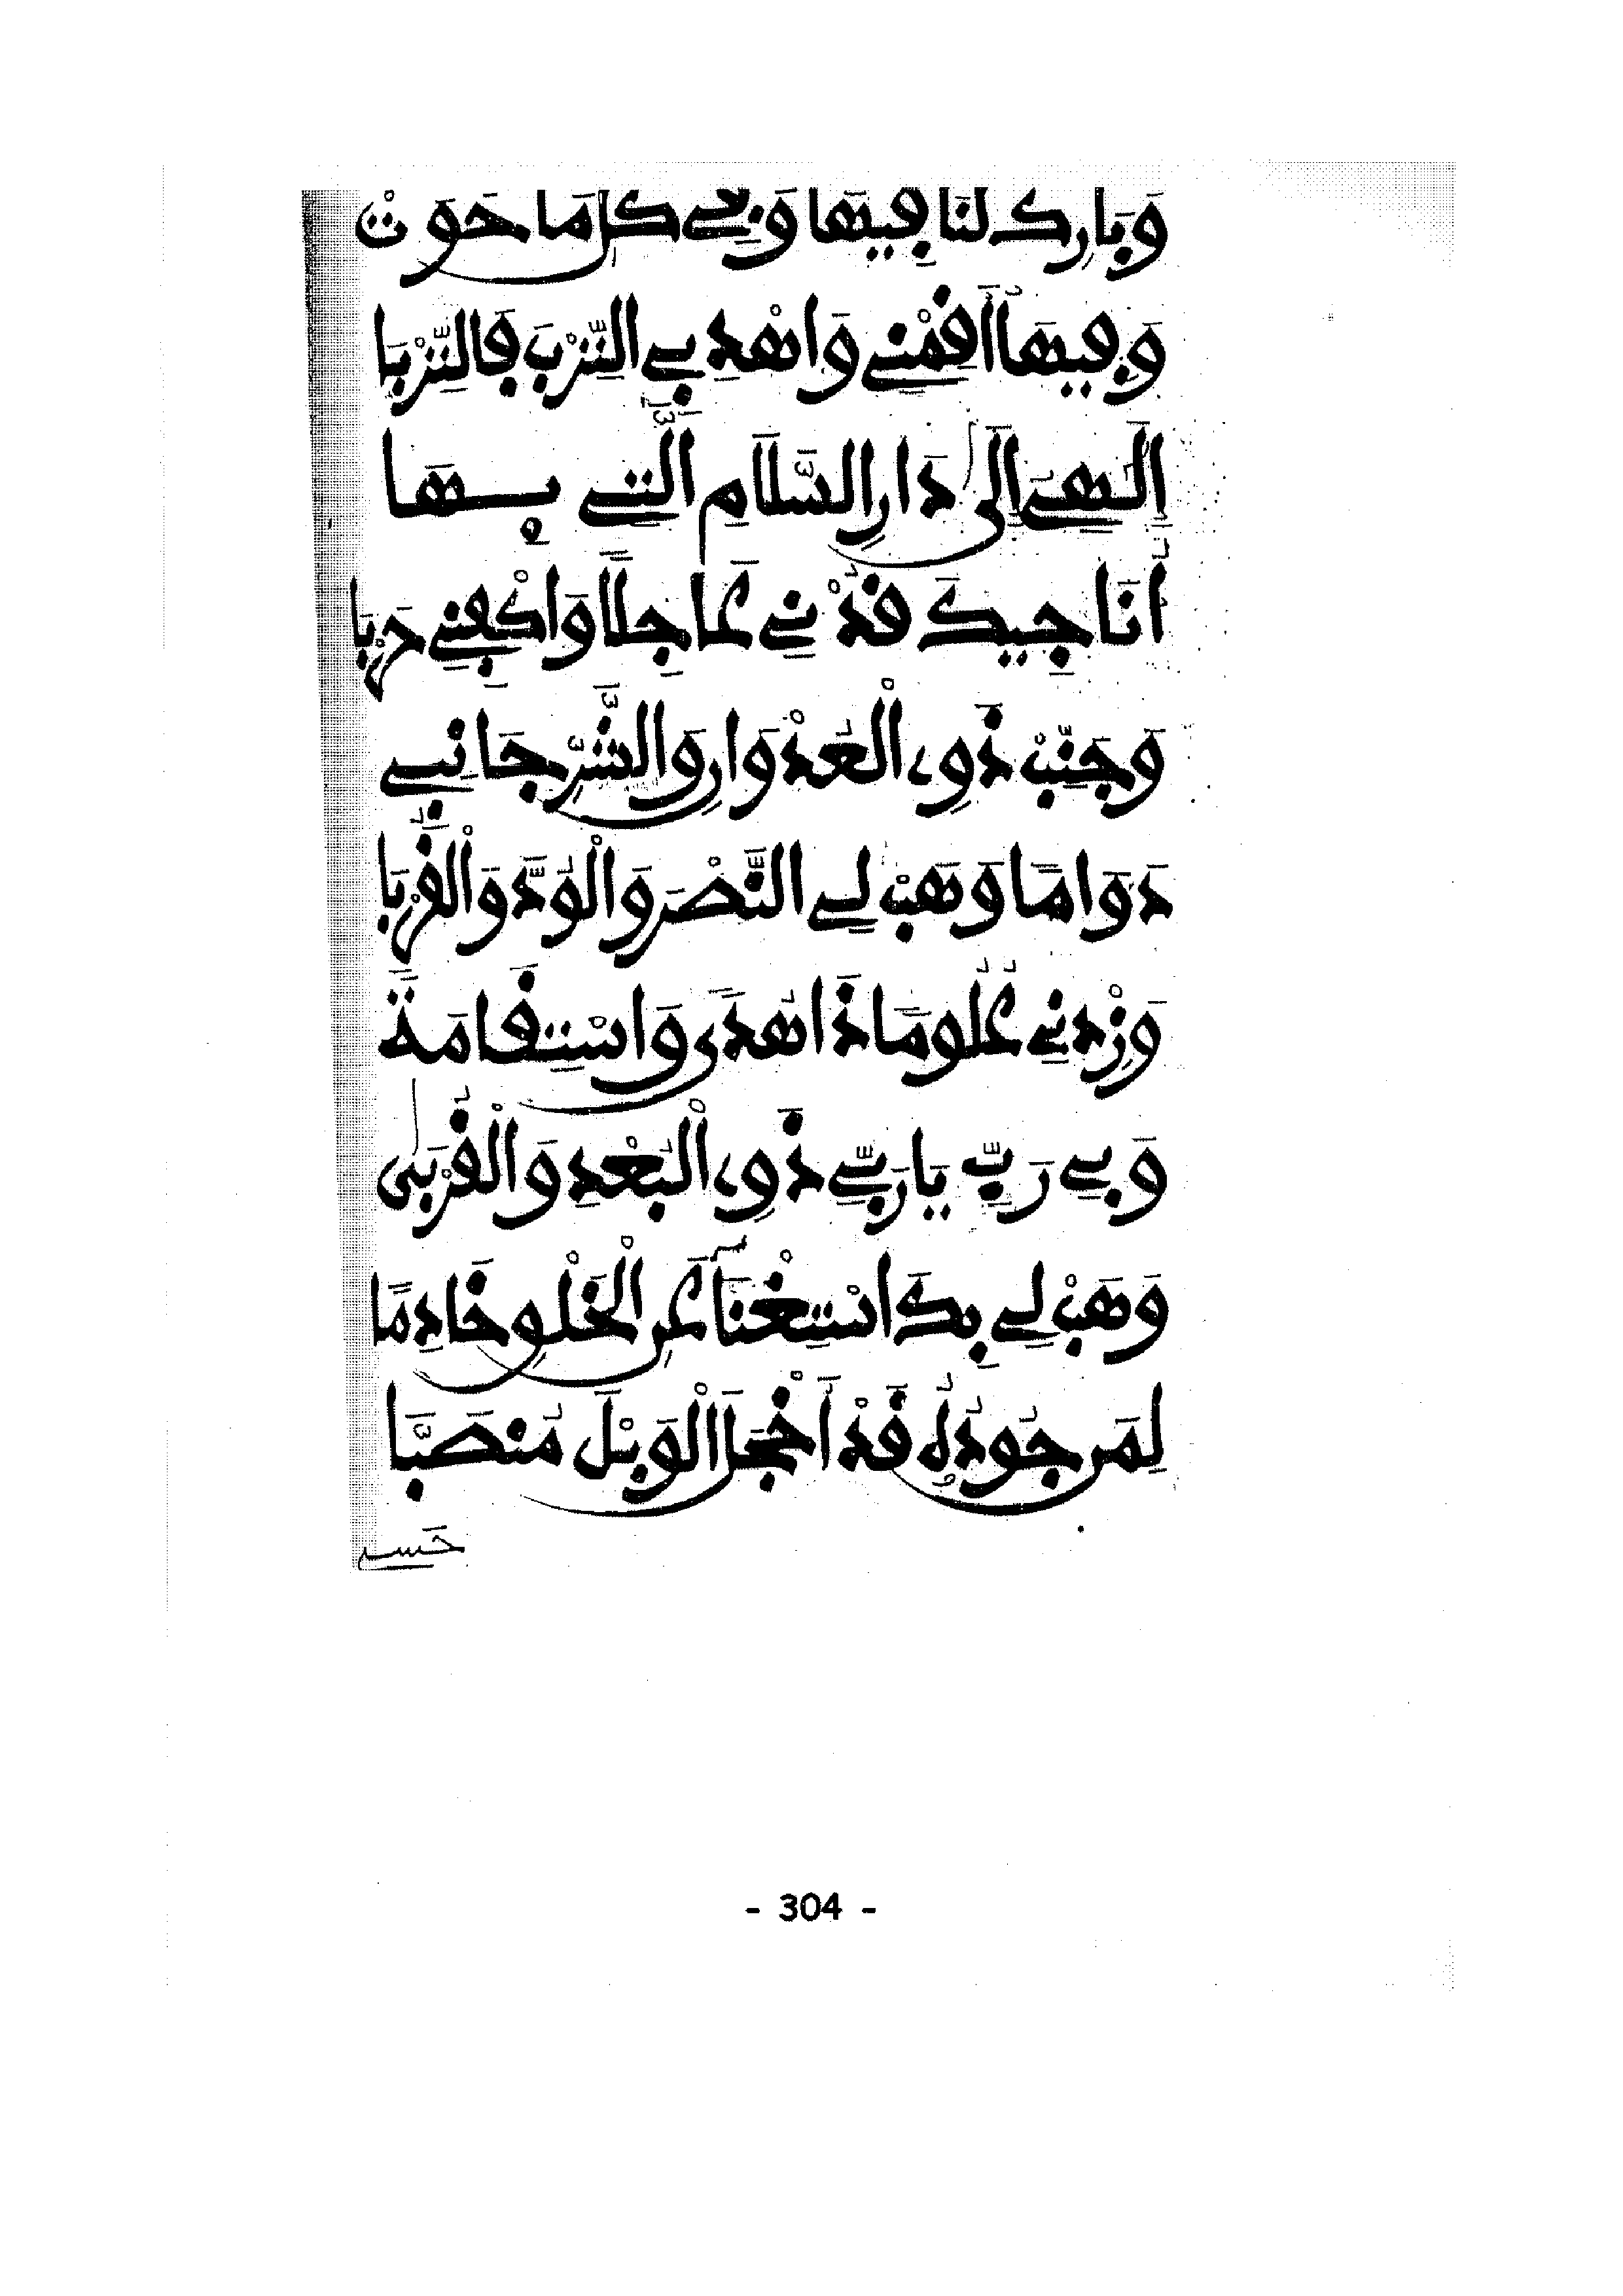 وَبَارِكْ لَنَا فِيهَا وَفِي كُلِّ مَا حَوَتْ
وَفِيهَا أَقِمْنِي وَاهْدِ بِي التِّرْبَ فَالتِّرْبَا
إِلَهِي إِلَى دَارِ السَّلَامِ الَّتِي بِهَا
أُنَاجِيكَ قُدْنِي عَاجِلًا وَاكْفِنِي حَرْبَا
وَجَنِّبْ ذَوِي الْعُدْوَانِ وَالشَّرِّ جَانِبِي
دَوَامًا وَهَبْ لِي النَّصْرَ وَالْوُدَّ وَالْقُرْبَا
وَزِدْنِي عُلُومًا ذَا هُدًى وَاسْتِقَامَةً
وَبِي رَبِّ يَا رَبِّي ذَوِي الْبُعْدِ وَالْقُرْبَى
وَهَبْ لِي بِكَ اسْتِغْنَاءً عَنِ الْخَلْقِ خَادِمًا
لِمَنْ جُودُهُ قَدْ أَخْجَلَ الْوَبْلَ مُنْصَبَّا
- 304 -